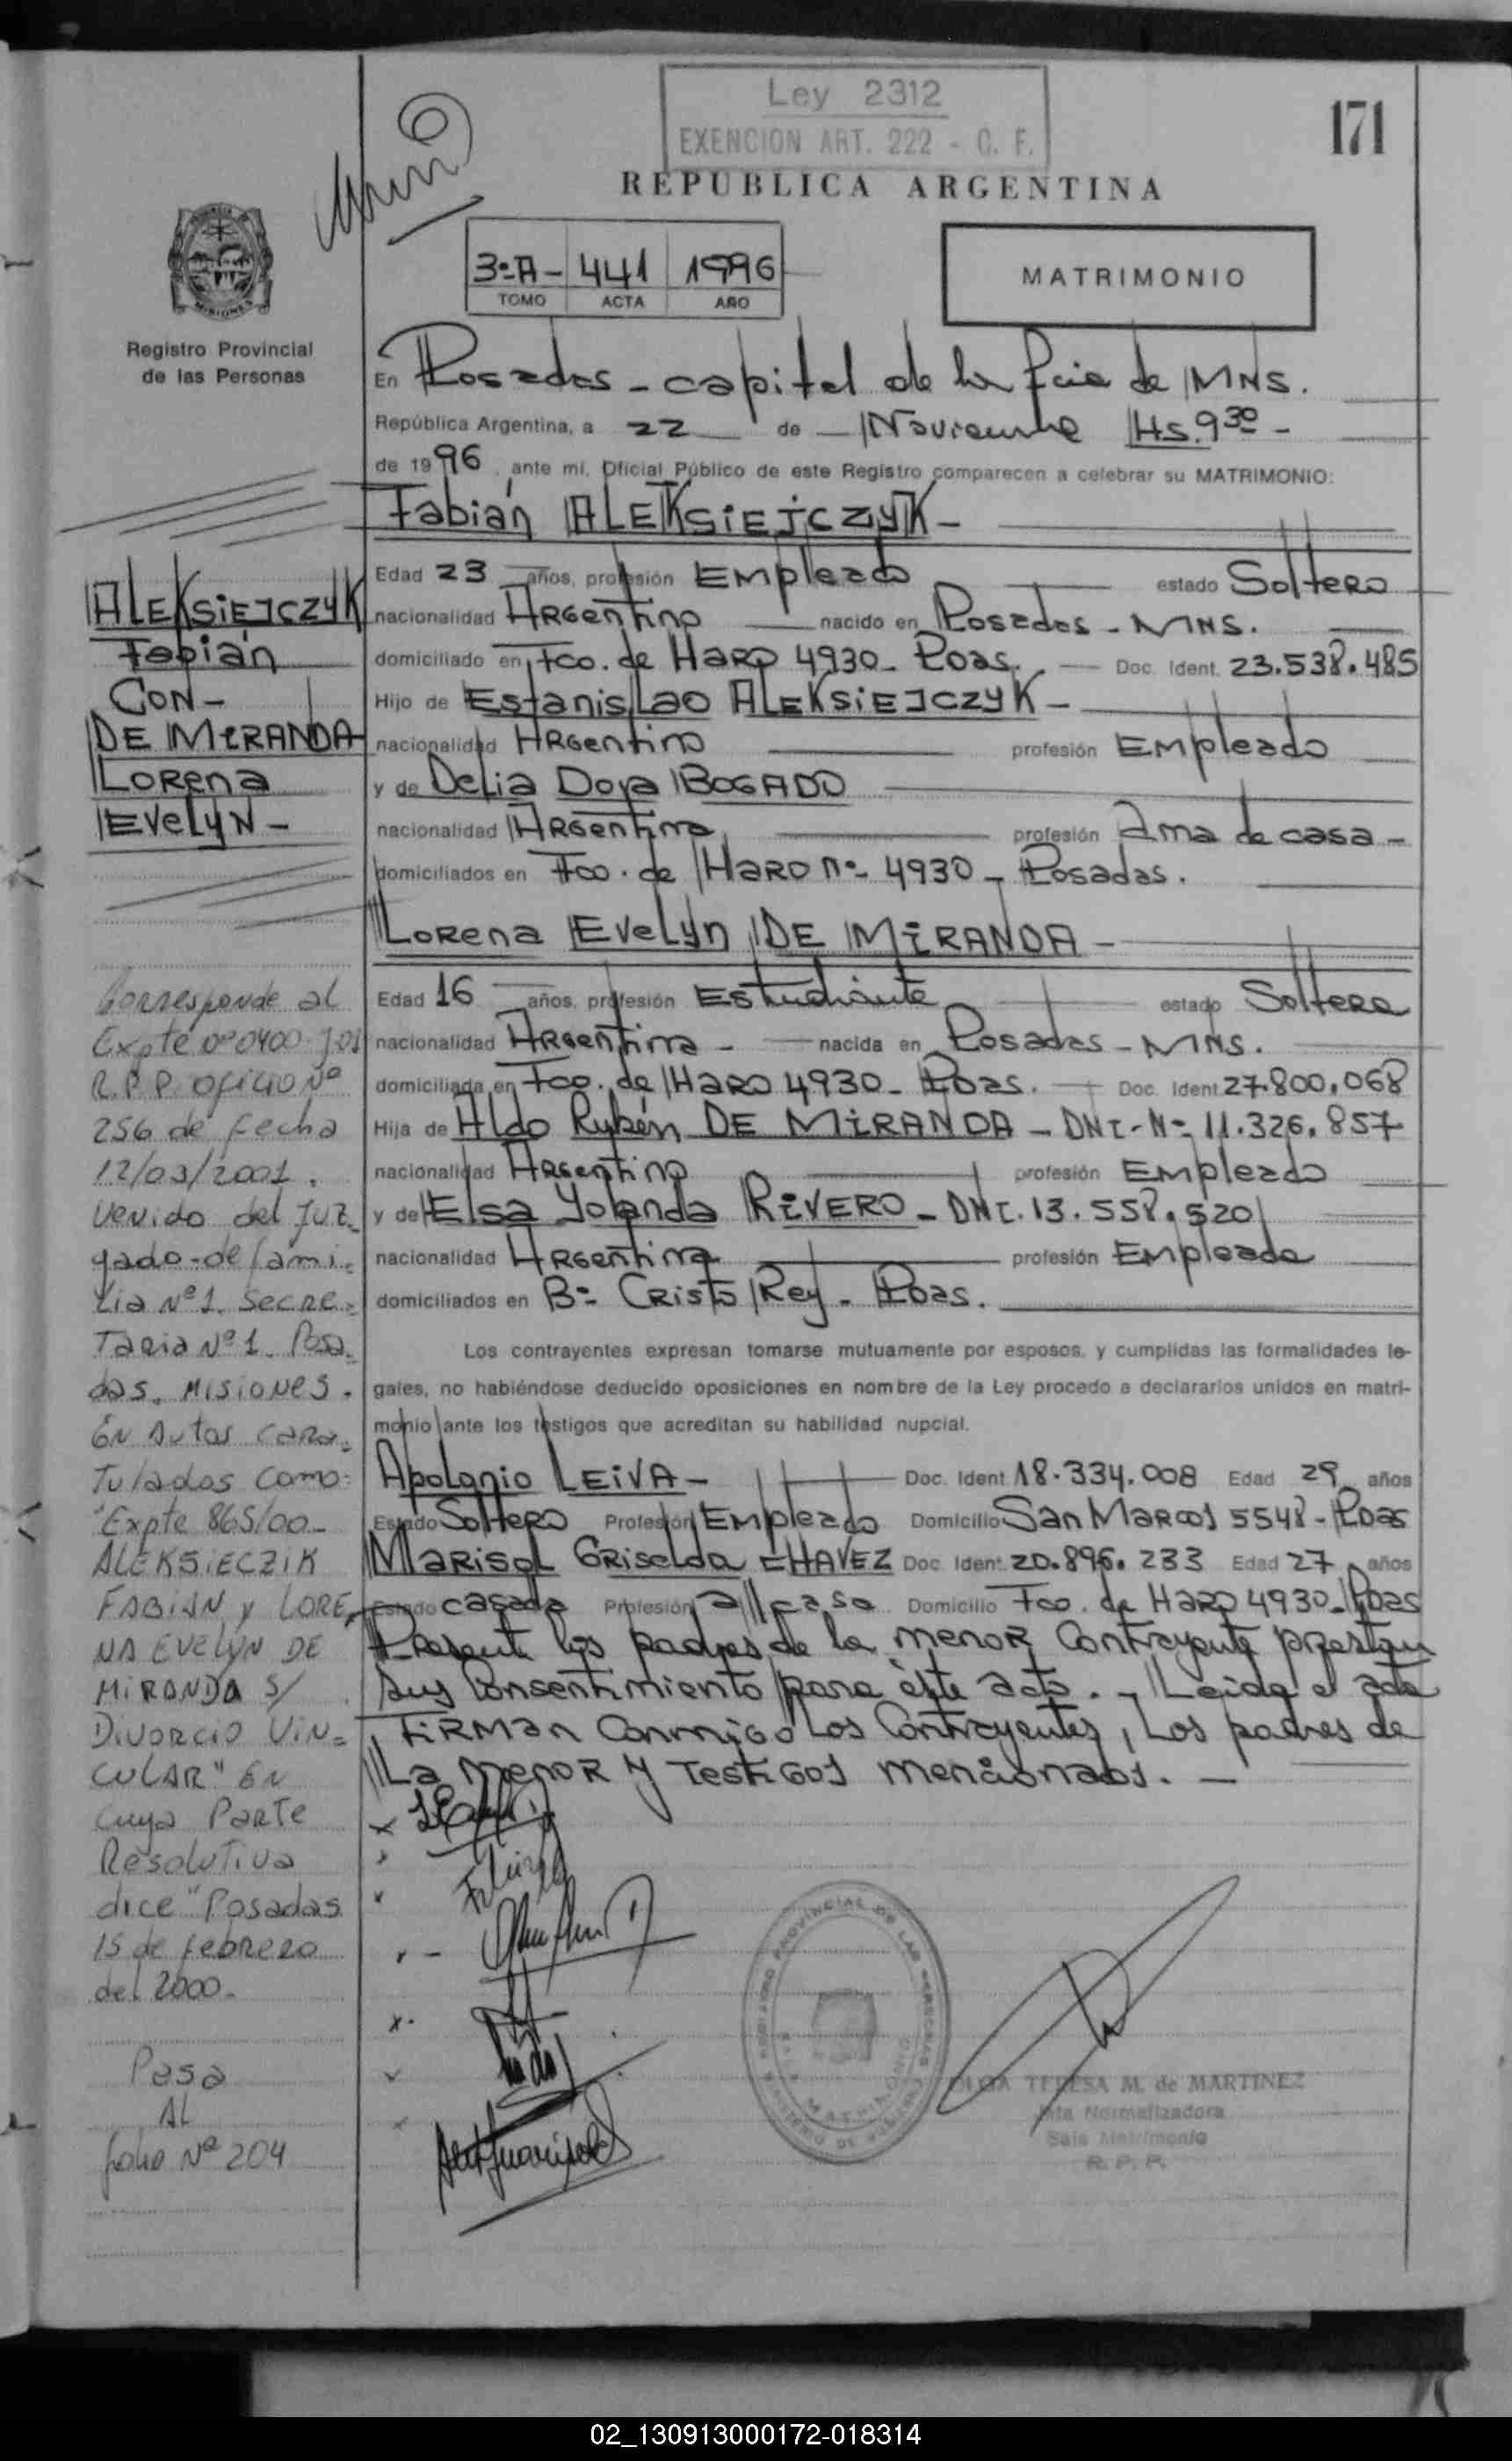 Ley 2312
EXENCION ART. 222 - C. F.
171
REPUBLICA ARGENTINA
3º-A- 441 1996
TOMO ACTA AÑO
MATRIMONIO
MISIONES
Registro Provincial
de las Personas
En Posadas - capital de la Pcia de MNS.
República Argentina, a 22 de Noviembre Hs. 9 30 -
de 1996, ante mí, Oficial Público de este Registro comparecen a celebrar su MATRIMONIO:
Fabián ALEKSIEJCZYK -
Edad 23 años, profesión Empleado estado Soltero
nacionalidad Argentino nacido en Posadas - MNS.
domiciliado en Fco. de Haro 4930 - Poas. Doc. Ident. 23.538.485
Hijo de Estanislao ALEKSIEJCZYK -
nacionalidad Argentino profesión Empleado
y de Delia Dora BOGADO
nacionalidad Argentina profesión Ama de casa -
domiciliados en Fco. de Haro Nº 4930 - Posadas.
Lorena Evelyn DE MIRANDA -
Edad 16 años, profesión Estudiante estado Soltera
nacionalidad Argentina - nacida en Posadas - MNS.
domiciliada en Fco. de Haro 4930 - Poas. Doc. Ident. 27.800.068
Hija de Aldo Rubén DE MIRANDA - DNI - Nº 11.326.857
nacionalidad Argentino profesión Empleado
y de Elsa Yolanda RIVERO - DNI. 13.558.520
nacionalidad Argentina profesión Empleada
domiciliados en Bº Cristo Rey - Poas.
Los contrayentes expresan tomarse mutuamente por esposos, y cumplidas las formalidades le-
gales, no habiéndose deducido oposiciones en nombre de la Ley procedo a declararlos unidos en matri-
monio ante los testigos que acreditan su habilidad nupcial.
Apolonio LEIVA - Doc. Ident 18.334.008 Edad 29 años
Estado Soltero Profesión Empleado Domicilio San Marcos 5548 - Poas
Marisol Griselda CHAVEZ Doc. Ident. 20.896.233 Edad 27 años
Estado casada Profesión a/casa Domicilio Fco. de Haro 4930 - Poas
Present los padres de la menor Contrayente prestan
sus Consentimiento para éste acto. - Leida el acta
FIRMan Conmigo Los Contrayentes, Los padres de
La menor y Testigos mencionados. -
ALEKSIEJCZYK
Fabián
CON -
DE MIRANDA
Lorena
Evelyn -
Corresponde al
Expte nº 0400-J-01
R.P.P. Oficio Nº
256 de fecha
12/03/2001.
Venido del Juz-
gado de fami-
lia Nº 1. Secre-
Taria Nº 1. Posa-
das. Misiones.
En Autos cara-
Tulados como:
"Expte 865/00-
ALEKSIECZIK
FABIAN y LORE
NA EVELYN DE
MIRANDA S/
DIVORCIO VIN-
CULAR" EN
cuya Parte
Resolutiva
dice "Posadas
15 de febrero
del 2000.
Pasa
AL
folio Nº 204
REGISTRO PROVINCIAL DE LAS PERSONAS
TERESA M. de MARTINEZ
Normalizadora
Sala Matrimonio
R. P. P.
02_130913000172-018314